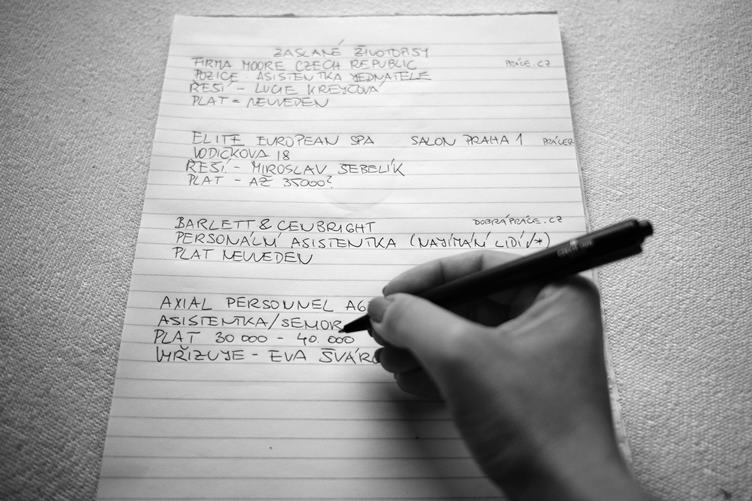 ZASLANÉ ŽIVOTOPISY
FIRMA MOORE CZECH REPUBLIC PRÁCE.CZ
POZICE - ASISTENTKA JEDNATELE
ŘEŠÍ - LUCIE KREJČOVÁ
PLAT = NEUVEDEN
ELITE EUROPEAN SPA SALON PRAHA 1
VODIČKOVA 18
ŘEŠÍ - MIROSLAV ŠEBELÍK
PLAT - AŽ 35000?
BARLETT & CENBRIGHT DOBRÁPRÁCE.CZ
PERSONÁLNÍ ASISTENTKA (NAJÍMÁNÍ LIDÍ/*)
PLAT NEUVEDEN
AXIAL PERSONNEL AG
ASISTENTKA/SENIOR
PLAT 30 000 - 40.000
VYŘIZUJE - EVA